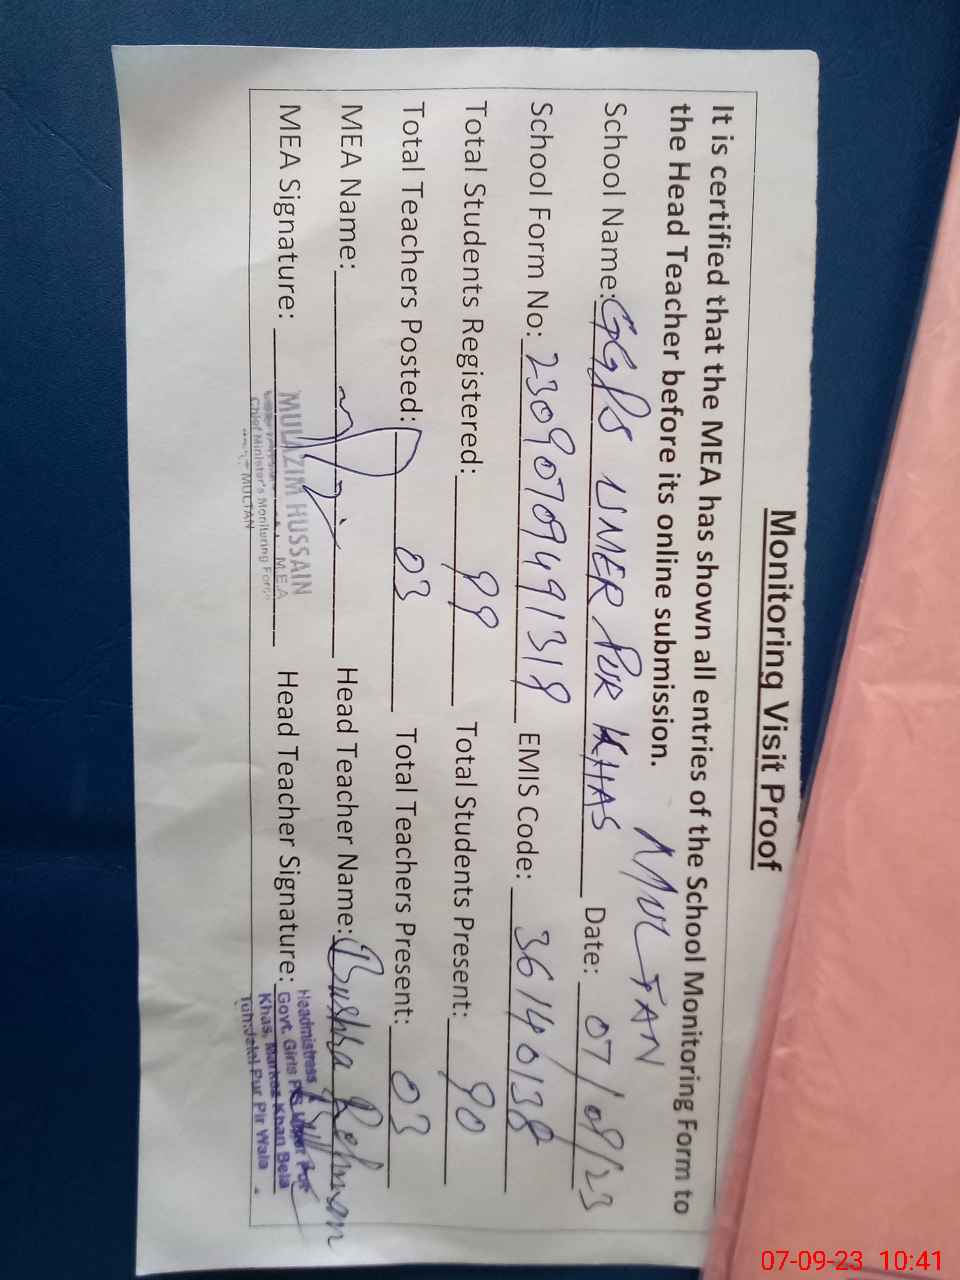 Monitoring Visit Proof
It is certified that the MEA has shown all entries of the School Monitoring Form to
the Head Teacher before its online submission.
MULTAN
School Name: GGPS UMER PUR KHAS Date: 07/09/23
School Form No: 23090709491318 EMIS Code: 36140138
Total Students Registered: 99 Total Students Present: 90
Total Teachers Posted: 03 Total Teachers Present: 03
MEA Name: Head Teacher Name: Bushra Rehman
MEA Signature: Head Teacher Signature:
MULAZIM HUSSAIN
M.E.A
Chief Minister's Monitoring Force
MULTAN
Headmistress
Govt. Girls P/S Umer Pur
Khas, Markaz Khan Bela
Teh: Jalal Pur Pir Wala
07-09-23 10:41